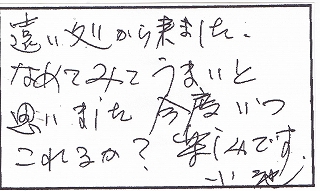 遠い処から来ました.
なめてみてうまいと
思いました 今度いつ
これるか? 楽しみです
小池